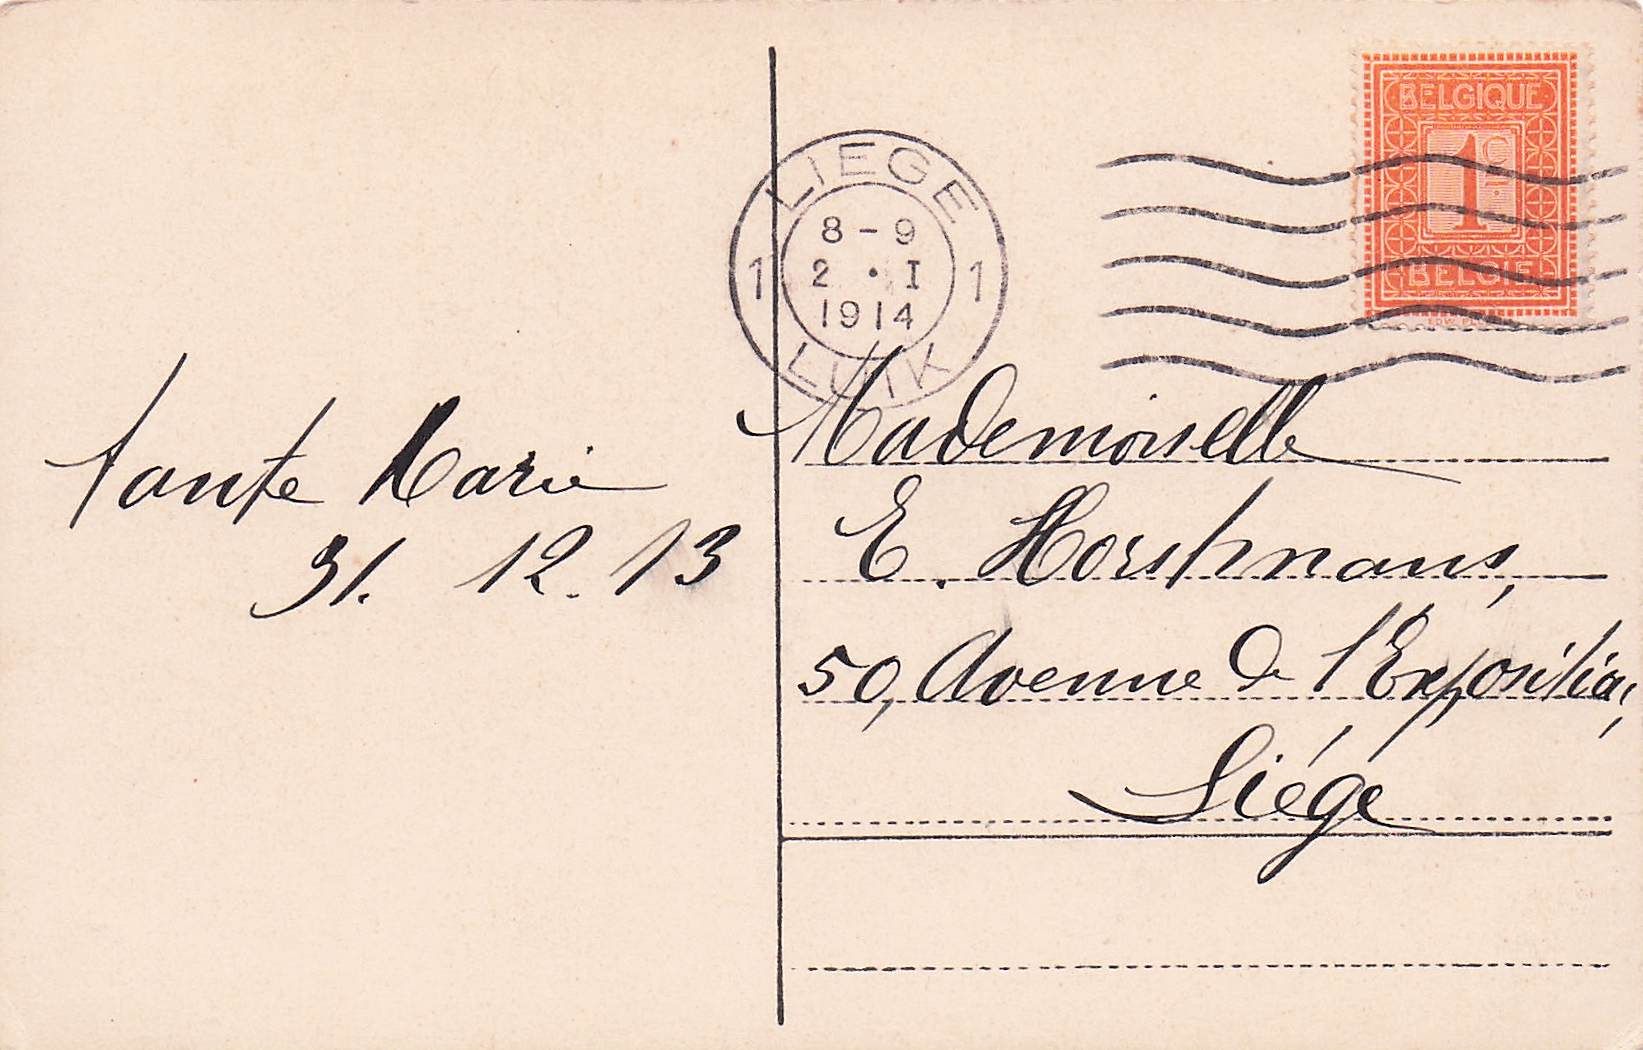 BELGIQUE
1c
BELGIË
LIEGE
8-9
1 2 • I 1
1914
LUIK
Tante Marie
31. 12. 13
Mademoiselle
E. Horstmans,
50, Avenue de l'Exposition,
Liége